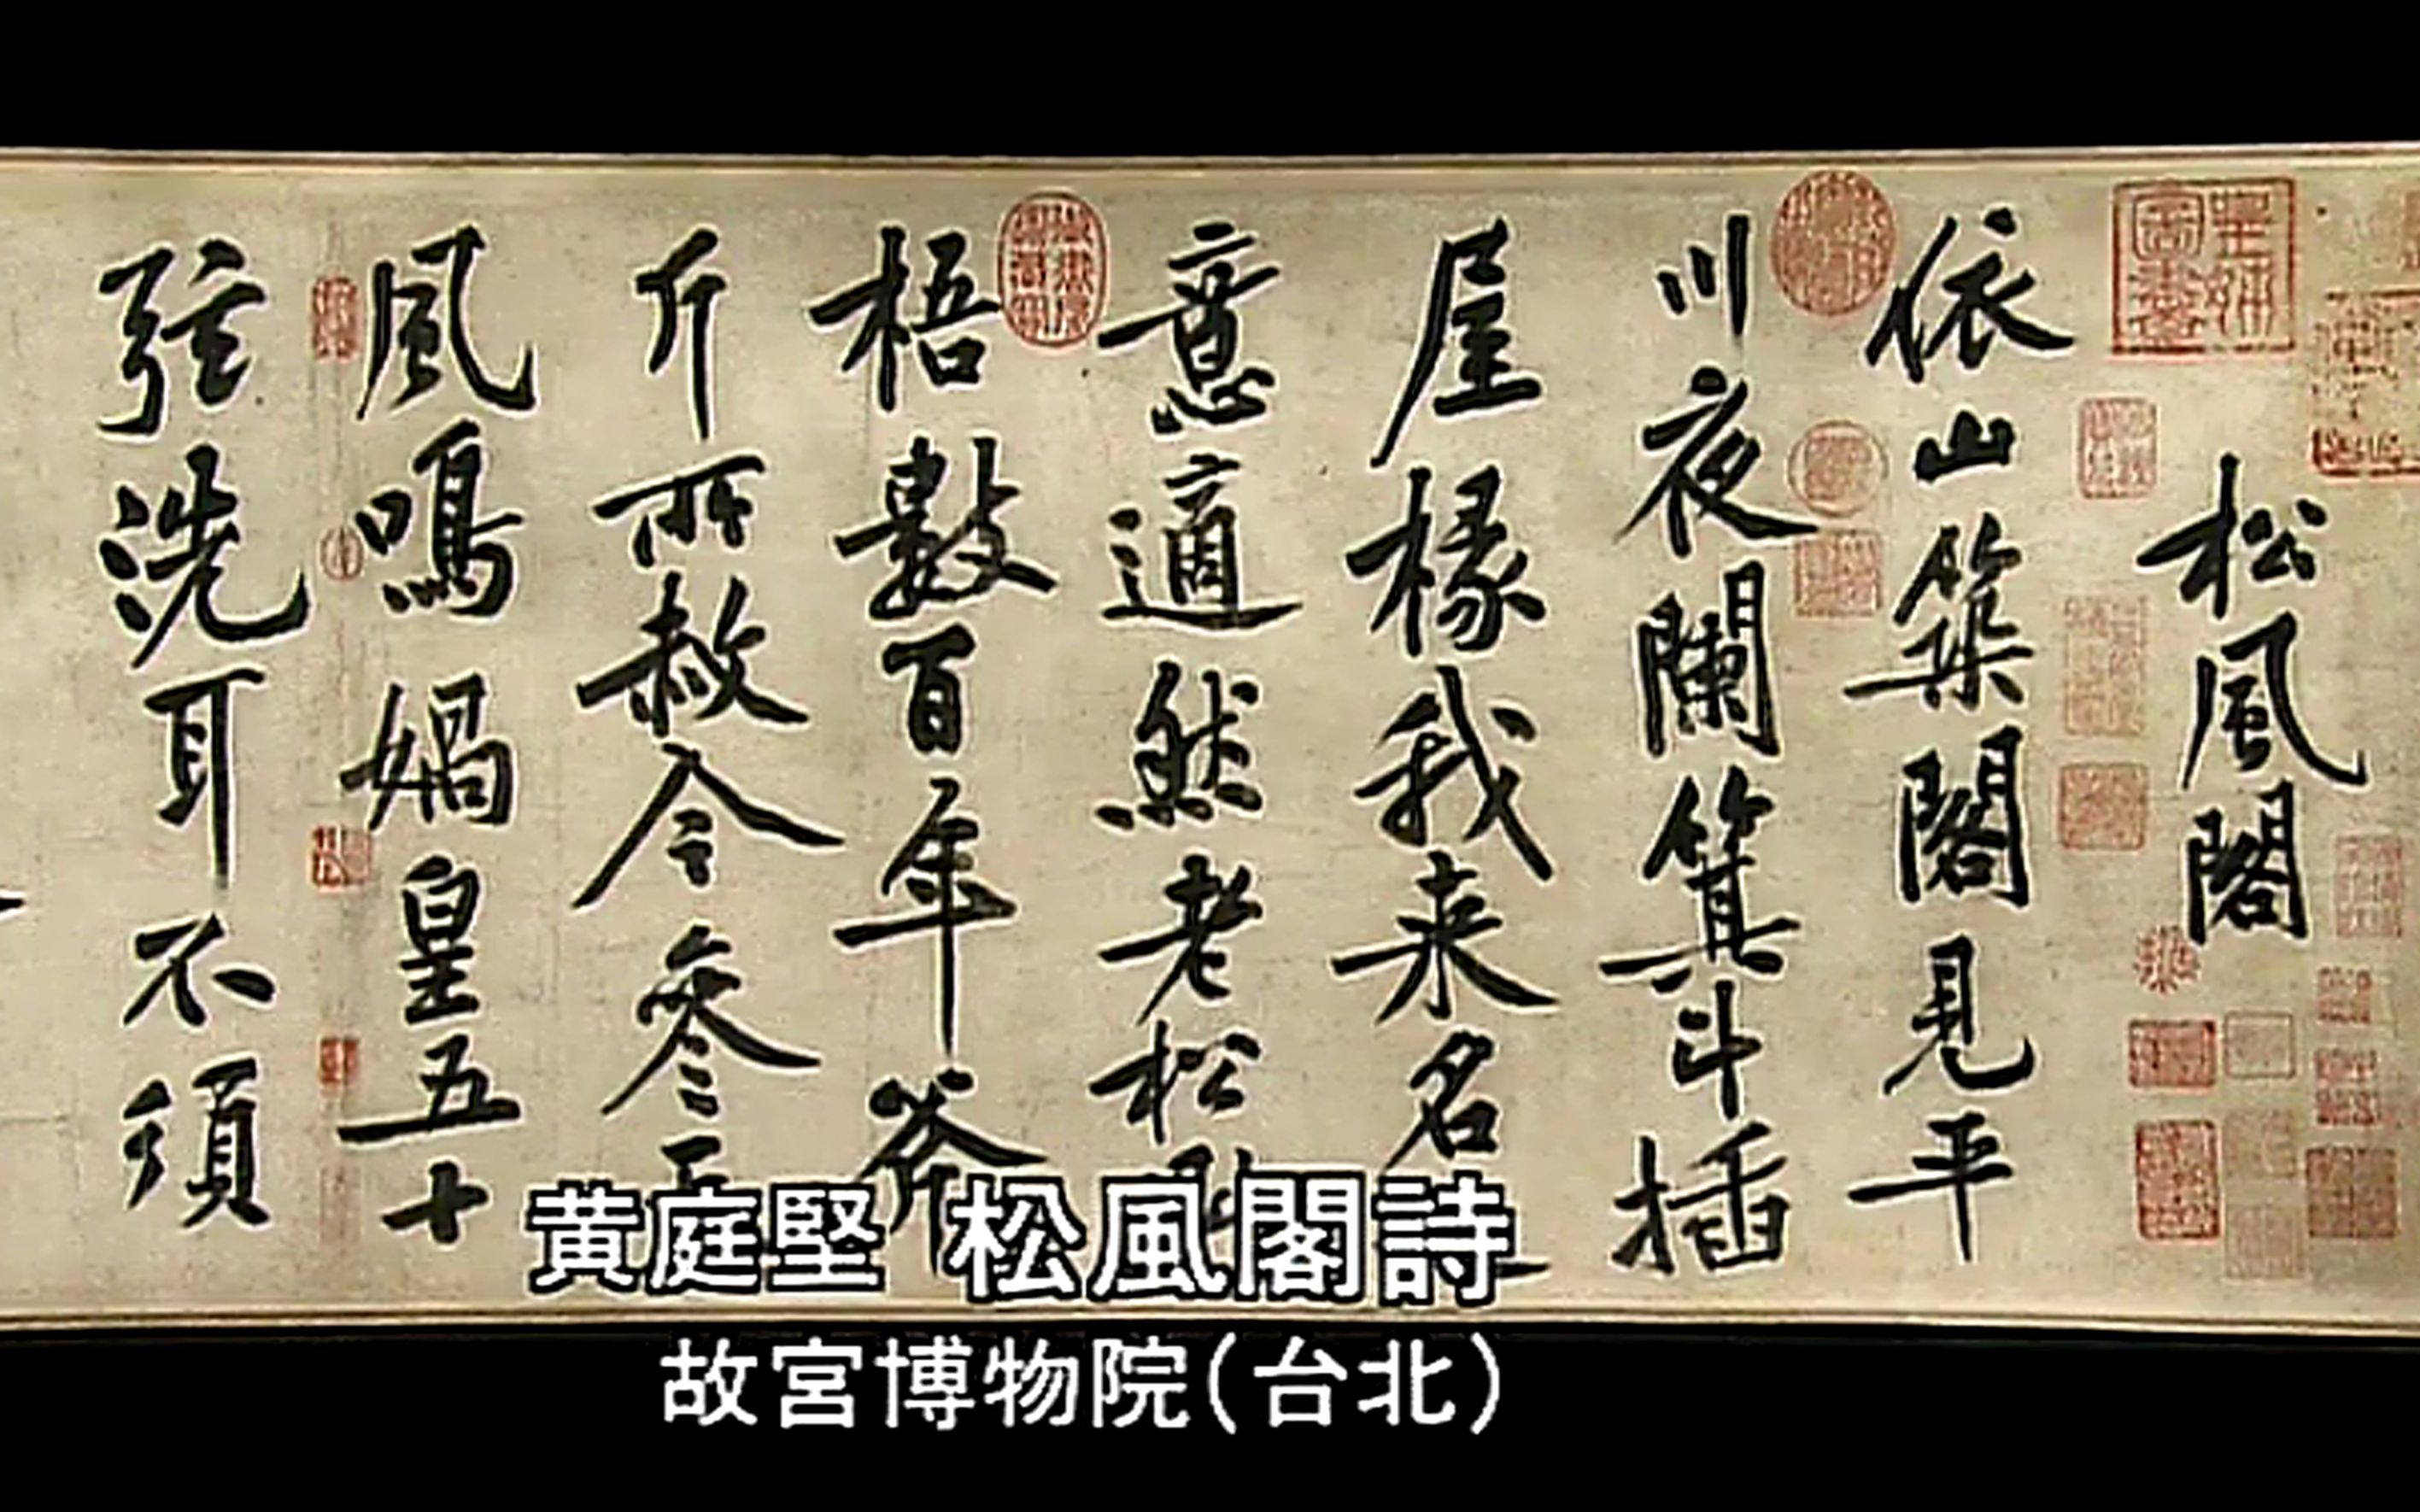 松風閣
依山築閣見平
川夜闌箕斗插
屋椽我来名
意適然老松
梧數百年斧
斤所赦今參
風鳴媧皇五十
弦洗耳不須
黄庭堅 松風閣詩
故宮博物院(台北)